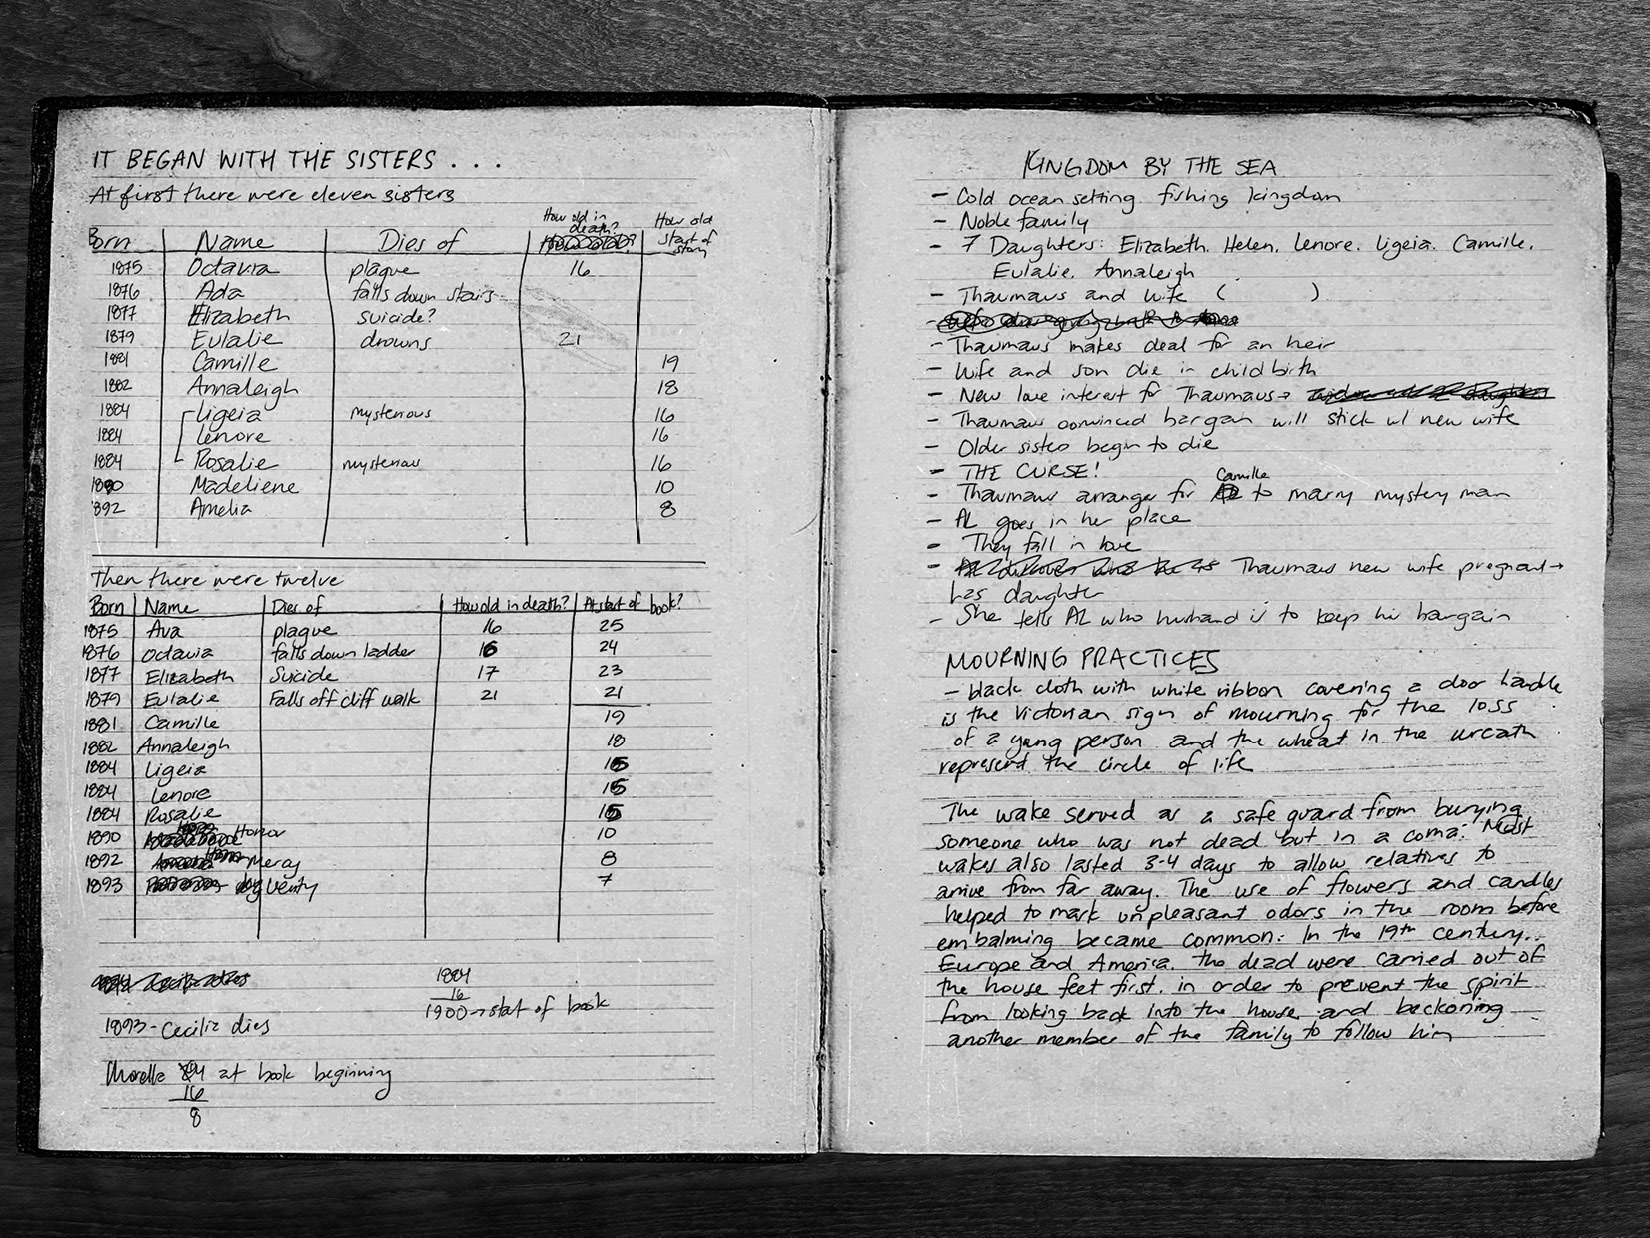 IT BEGAN WITH THE SISTERS . . .
At first there were eleven sisters
Born Name Dies of How old in death? How old start of story
1875 Octavia plague 16
1876 Ada falls down stairs
1877 Elizabeth suicide?
1879 Eulalie drowns 21
1881 Camille 19
1882 Annaleigh 18
1884 Ligeia mysterious 16
1884 Lenore 16
1884 Rosalie mysterious 16
1890 Madeliene 10
1892 Amelia 8
Then there were twelve
Born Name Dies of How old in death? At start of book?
1875 Ava plague 16 25
1876 Octavia falls down ladder 16 24
1877 Elizabeth Suicide 17 23
1879 Eulalie Falls off cliff walk 21 21
1881 Camille 19
1882 Annaleigh 18
1884 Ligeia 15
1884 Lenore 15
1884 Rosalie 15
1890 Honor 10
1892 Mercy 8
1893 Verity 7
1884
16
1900→start of book
1893- Cecilia dies
Morella 24 at book beginning
16
8
KINGDOM BY THE SEA
- Cold ocean setting fishing kingdom
- Noble family
- 7 Daughters: Elizabeth, Helen, Lenore, Ligeia, Camille,
Eulalie, Annaleigh
- Thaumaus and wife ( )
- Thaumaus makes deal for an heir
- Wife and son die in childbirth
- New love interest for Thaumaus→
- Thaumaus convinced bargain will stick w/ new wife
- Older sisters begin to die
- THE CURSE!
- Thaumaus arranges for Camille to marry mystery man
- AL goes in her place
- They fall in love
- Thaumaus new wife pregnant→
has daughter
- She tells AL who husband is to keep his bargain
MOURNING PRACTICES
- black cloth with white ribbon covering a door handle
is the Victorian sign of mourning for the loss
of a young person and the wheat in the wreath
represent the circle of life
The wake served as a safe guard from burying
someone who was not dead but in a coma. Most
wakes also lasted 3-4 days to allow relatives to
arrive from far away. The use of flowers and candles
helped to mask unpleasant odors in the room before
embalming became common. In the 19th century..
Europe and America, the dead were carried out of
the house feet first, in order to prevent the spirit
from looking back into the house and beckoning
another member of the family to follow him